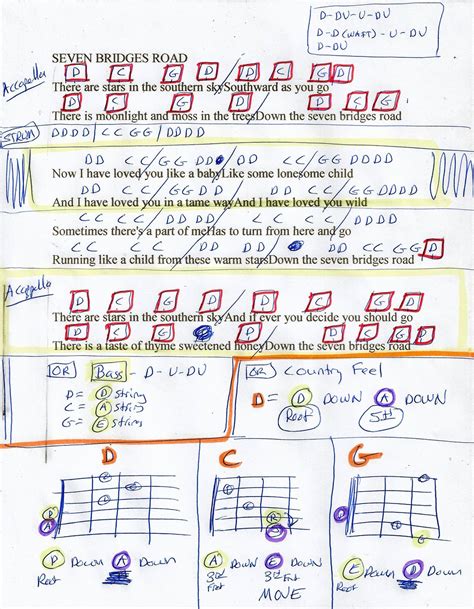 D-DU-U-DU
D-D(WAIT)-U-DU
D-DU
SEVEN BRIDGES ROAD
Accapella
D C G D D C G D
There are stars in the southern skySouthward as you go
D C G D D C G D
There is moonlight and moss in the treesDown the seven bridges road
STRUM DDDD / CC GG / DDDD
DD CC / GG DD DD CC / GG DDDD
Now I have loved you like a babyLike some lonesome child
And I have loved you in a tame wayAnd I have loved you wild
Sometimes there's a part of meHas to turn from here and go
Running like a child from these warm starsDown the seven bridges road
Accapella
D C G D D C G D
There are stars in the southern skyAnd if ever you decide you should go
There is a taste of thyme sweetened honeyDown the seven bridges road
OR Bass - D-U-DU
D = D string
C = A string
G = E string
OR Country Feel
D = D DOWN A DOWN
Root 5th
D C G
D Down A Down
Root
A DOWN E DOWN
3rd Fret 3rd Fret
MOVE
E Down D Down
Root